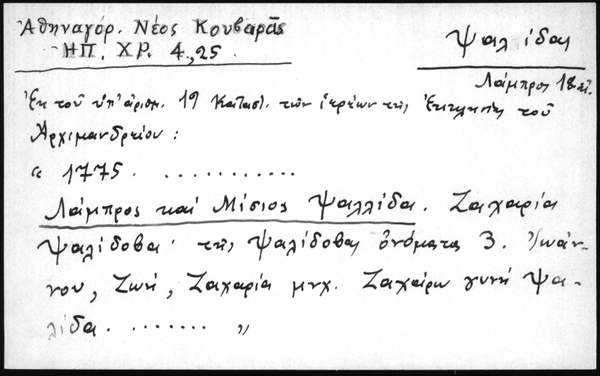 Ἀθηναγόρ. Νέος Κουβαρᾶς
ΗΠ. ΧΡ. 4, 25.
Ψαλίδας
Λάμπρος 18 αἰ.
Ἐκ τοῦ ὑπ' ἀριθμ. 19 Καταστ. τῶν ἱερέων τῆς τοῦ
Ἀρχιμανδρείου:
« 1775. ...........
Λάμπρος καὶ Μίσιος Ψαλλίδα. Ζαχαρία
Ψαλίδοβα· τῆς Ψαλίδοβας ὀνόματα 3. Ἰωάν-
νου, Ζωή, Ζαχαρία μνχ. Ζαχάρω γυνή Ψα-
λίδα. ........ »